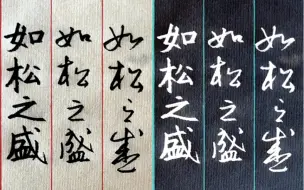 如松之盛
如松之盛
如松之盛
如松之盛
如松之盛
如松之盛